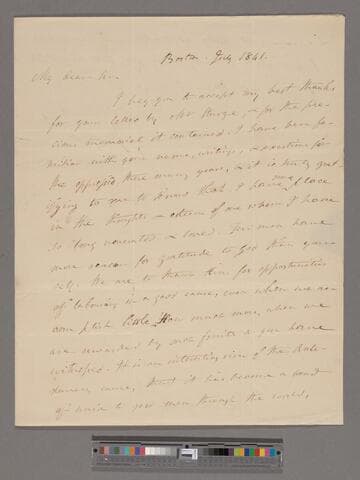 Boston July 1841.
My dear Sir,
I beg you to accept my best thanks
for your letter by Mr Sturge, & for the pre-
cious memorial it contained. I have been fa-
miliar with your name, writings, & exertions for
the oppressed these many years, & it is truly grat-
ifying to me to know that I have a place
in the thoughts & esteem of one whom I have
so long venerated & loved. Few men have
more reason for gratitude to God than your-
self. We are to thank him for opportunities
of labouring in a good cause, even when we ac-
complish little. How much more, when we
are rewarded by such fruits as you have
witnessed. It is an interesting view of the Anti-
slavery cause, that it has become a bond
of union to good men through the world,